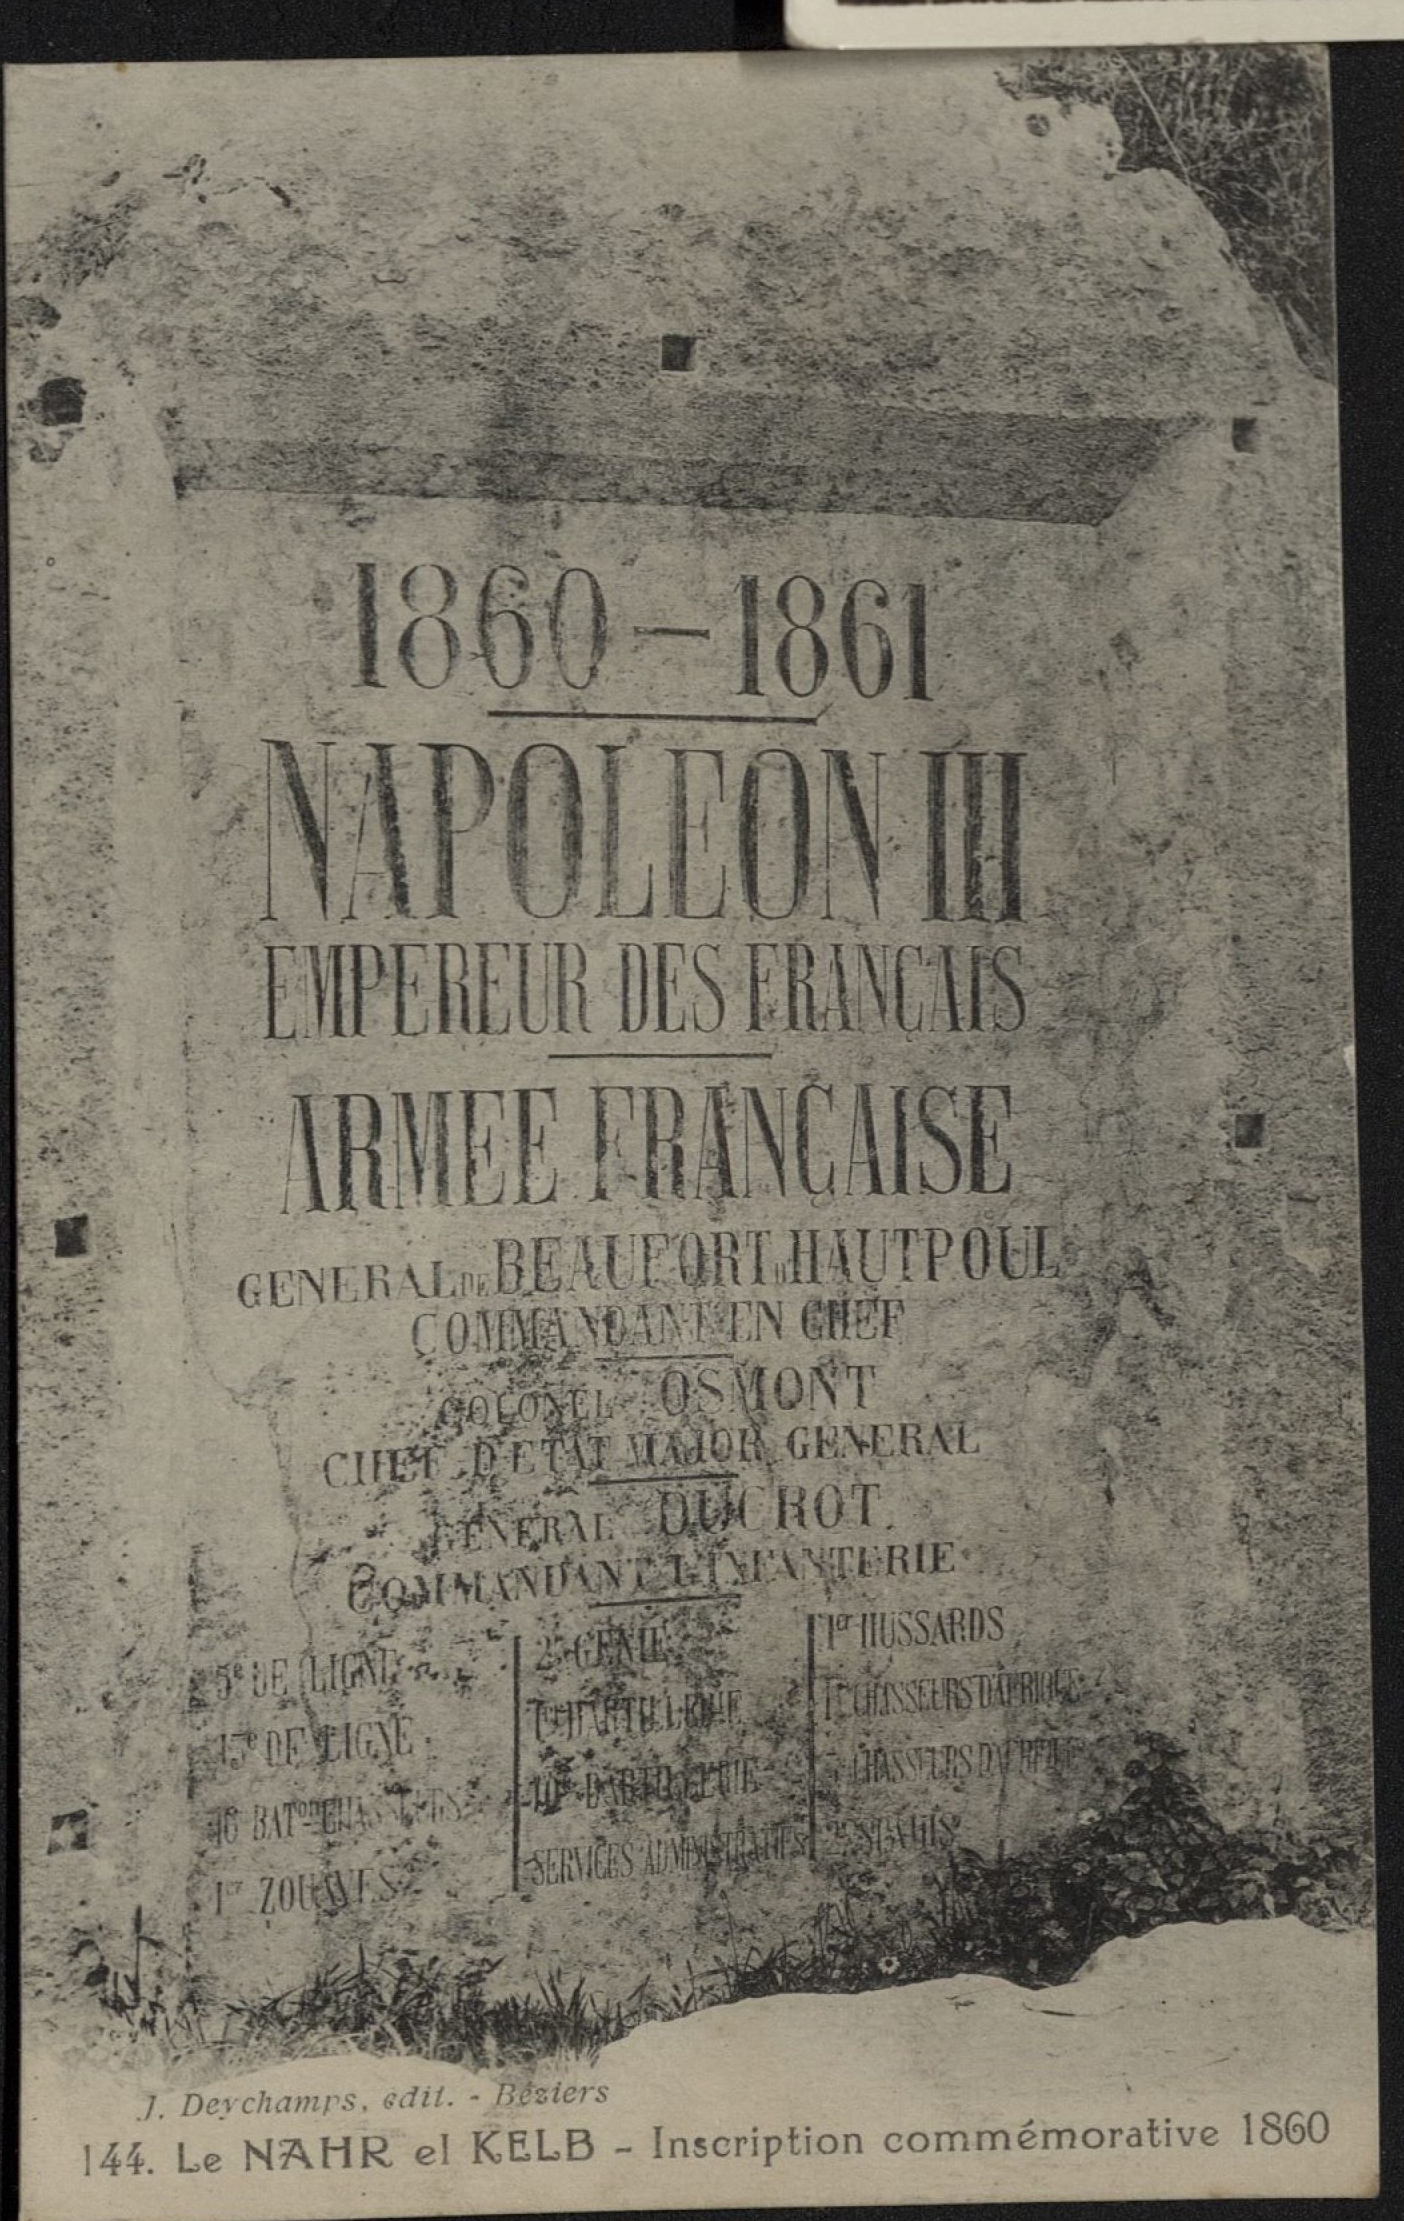 1860 — 1861
NAPOLEON III
EMPEREUR DES FRANÇAIS
ARMEE FRANÇAISE
GENERAL DE BEAUFORT D'HAUTPOUL
COMMANDANT EN CHEF
COLONEL OSMONT
CHEF D'ETAT MAJOR GENERAL
GENERAL DUCROT
COMMANDANT L'INFANTERIE
5e DE LIGNE
13e DE LIGNE
16 BATon CHASSEURS
1er ZOUAVES
2e GENIE
1er D'ARTILLERIE
10e D'ARTILLERIE
SERVICES ADMINISTRATIFS
1er HUSSARDS
1er CHASSEURS D'AFRIQUE
CHASSEURS D'AFRIQUE
2e SPAHIS
J. Deychamps, edit. - Béziers
144. Le NAHR el KELB - Inscription commémorative 1860